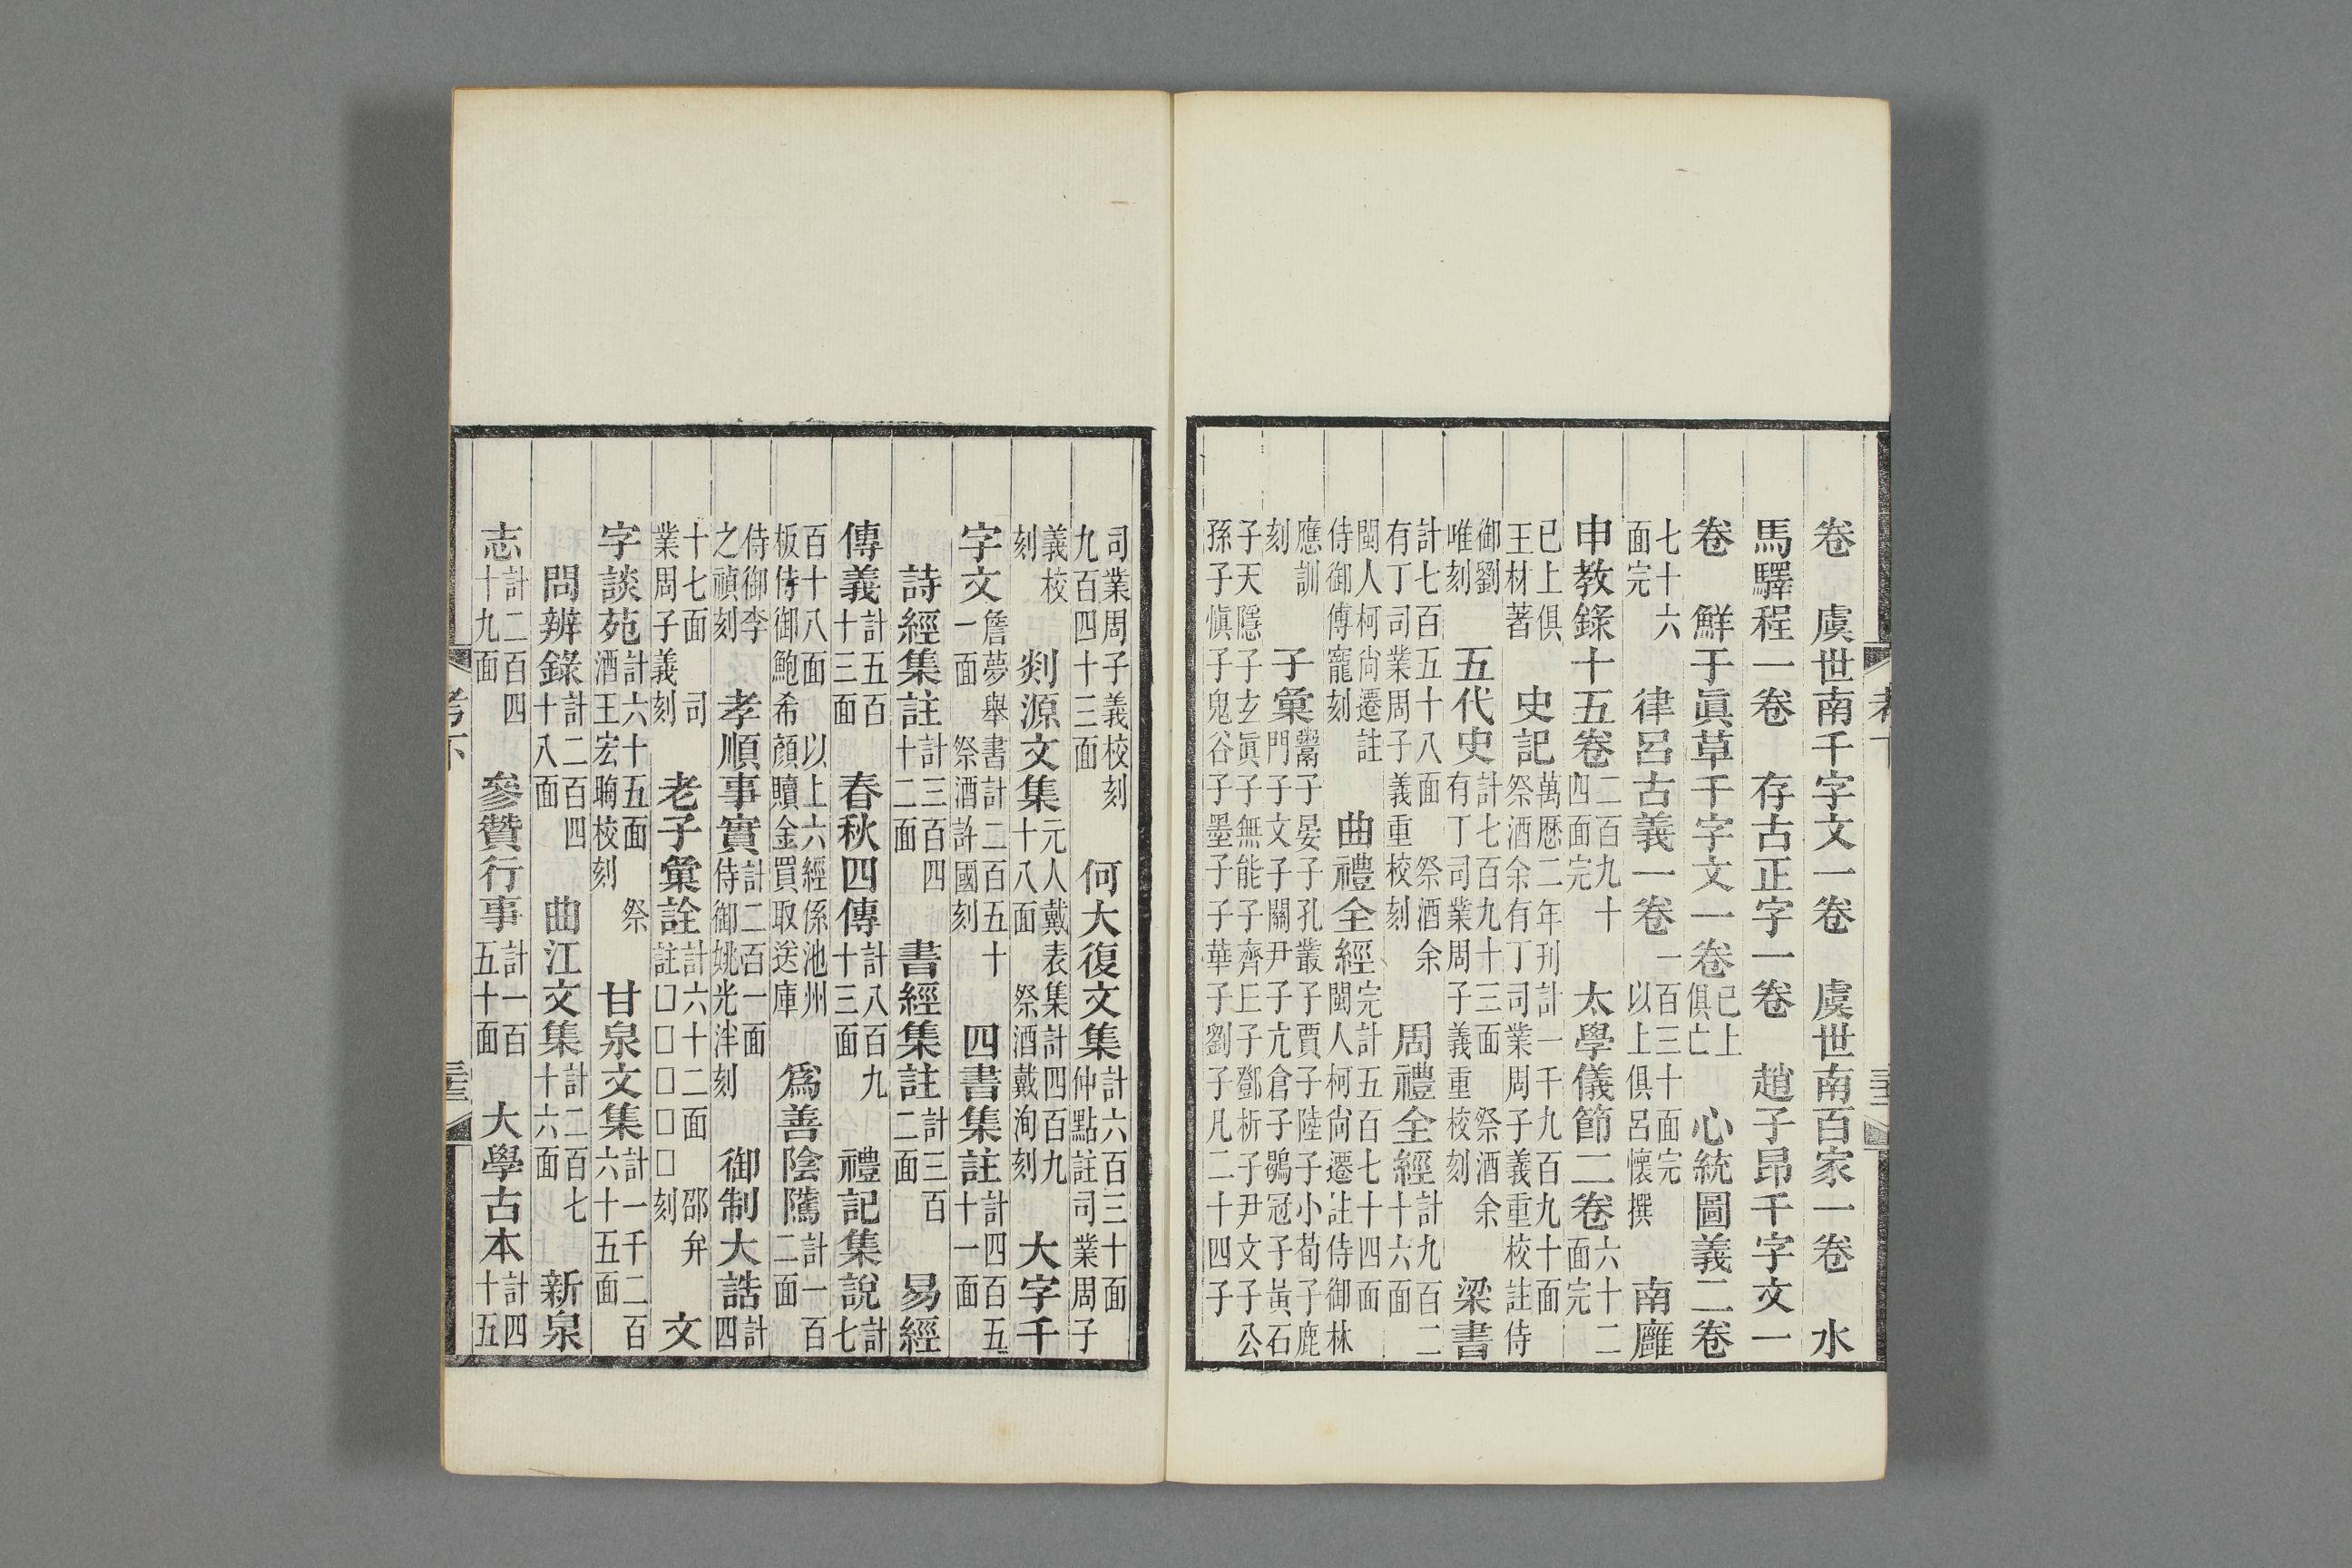 卷　虞世南千字文一卷　虞世南百家一卷　水
馬驛程一卷　存古正字一卷　趙子昂千字文一
卷　鮮于眞草千字文一卷已上俱亡　心統圖義二卷
七十六面完　律呂古義一卷一百三十面完以上俱呂懷撰　南廱
申教錄十五卷二百九十四面完　太學儀節二卷六十二面完
已上俱王材著　史記萬厯二年刊計一千九百九十面祭酒余有丁司業周子義重校註侍
御劉唯刻　五代史計七百九十三面　祭酒余有丁司業周子義重校刻　梁書
計七百五十八面　祭酒余有丁司業周子義重校刻　周禮全經計九百二十六面
閩人柯尚遷註侍御傳寵刻　曲禮全經完計五百七十四面閩人柯尚遷註侍御林
應訓刻　子彙鬻子晏子孔叢子賈子陸子小荀子鹿門子文子關尹子亢倉子鶡冠子黃石
子天隱子玄眞子無能子齊丘子鄧析子尹文子公孫子愼子鬼谷子墨子子華子劉子凡二十四子
司業周子義校刻九百四十三面　何大復文集計六百三十面仲點註司業周子
義校刻　剡源文集元人戴表集計四百九十八面　祭酒戴洵刻　大字千
字文詹夢舉書計二百五十一面　祭酒許國刻　四書集註計四百五十一面
詩經集註計三百四十二面　書經集註計三百二面　易經
傳義計五百十三面　春秋四傳計八百九十三面　禮記集說計七
百十八面　以上六經係池州板侍御鮑希顔贖金買取送庫　爲善陰隲計一百二面
侍御李之禎刻　孝順事實計二百一面侍御姚光泮刻　御制大誥計四
十七面　司業周子義刻　老子彙詮計六十二面　邵弁註□□□□刻　文
字談苑計六十五面　祭酒王宏校刻　甘泉文集計一千二百六十五面
問辨錄計二百四十八面　曲江文集計二百七十六面　新泉
志計二百四十九面　參贊行事計一百五十面　大學古本計四十五